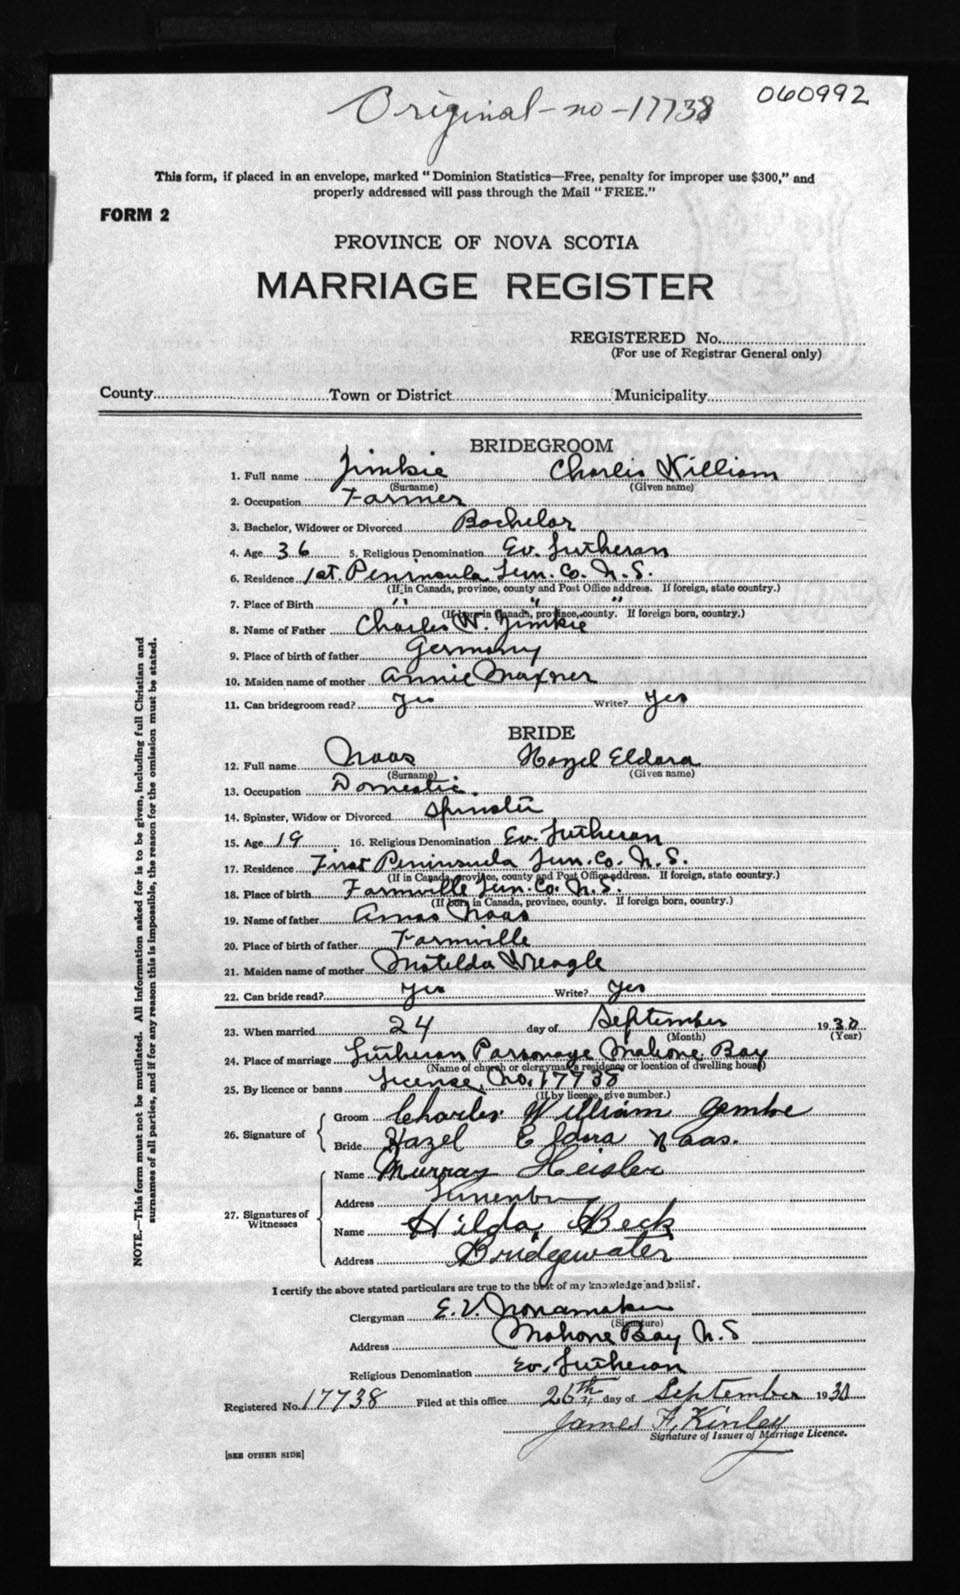 Original - no - 17738 060992
This form, if placed in an envelope, marked "Dominion Statistics—Free, penalty for improper use $300," and
properly addressed will pass through the Mail "FREE."
FORM 2
PROVINCE OF NOVA SCOTIA
MARRIAGE REGISTER
REGISTERED No.
(For use of Registrar General only)
County Town or District Municipality
BRIDEGROOM
1. Full name Zimkie Charlis William
(Surname) (Given name)
2. Occupation Farmer
3. Bachelor, Widower or Divorced Bachelor
4. Age 36 5. Religious Denomination Ev. Lutheran
6. Residence 1st. Peninsula Lun. Co. N. S.
(If in Canada, province, county and Post Office address. If foreign, state country.)
7. Place of Birth " " "
(If born in Canada, province, county. If foreign born, country.)
8. Name of Father Charles W. Zimkie
9. Place of birth of father Germany
10. Maiden name of mother Annie Maxner
11. Can bridegroom read? Yes Write? Yes
BRIDE
12. Full name Naas Hazel Eldora
(Surname) (Given name)
13. Occupation Domestic.
14. Spinster, Widow or Divorced Spinster
15. Age 19 16. Religious Denomination Ev. Lutheran
17. Residence First Peninsula Lun. Co. N. S.
(If in Canada, province, county and Post Office address. If foreign, state country.)
18. Place of birth Farmville Lun. Co. N. S.
(If born in Canada, province, county. If foreign born, country.)
19. Name of father Amos Naas
20. Place of birth of father Farmville
21. Maiden name of mother Matilda Veagle
22. Can bride read? Yes Write? Yes
23. When married 24 day of September 1930
(Month) (Year)
24. Place of marriage Lutheran Parsonage Mahone Bay
(Name of church or clergyman's residence or location of dwelling house)
25. By licence or banns License No. 17738
(If by licence, give number.)
26. Signature of
Groom Charles William Zembe
Bride Hazel Eldora Naas.
27. Signatures of Witnesses
Name Murray Heisler
Address Lunenburg
Name Hilda Beck
Address Bridgewater
I certify the above stated particulars are true to the best of my knowledge and belief.
Clergyman E. V. Nonamaker
(Signature)
Address Mahone Bay N. S
Religious Denomination Ev. Lutheran
Registered No. 17738 Filed at this office 26th day of September 1930
James A. Kinley
Signature of Issuer of Marriage Licence.
[SEE OTHER SIDE]
NOTE.—This form must not be mutilated. All information asked for is to be given, including full Christian and
surnames of all parties, and if for any reason this is impossible, the reason for the omission must be stated.